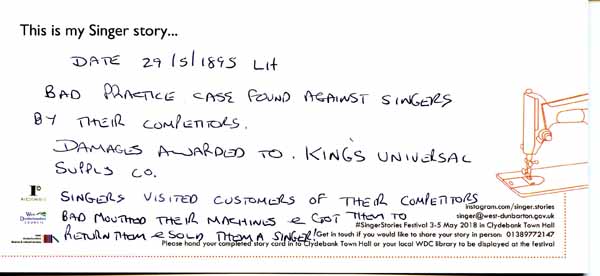 This is my Singer story...
DATE 29/5/1895 Lit
BAD PRACTICE CASE FOUND AGAINST SINGERS
BY THEIR COMPETITORS.
DAMAGES AWARDED TO. KING'S UNIVERSAL
SUPPLY CO.
SINGERS VISITED CUSTOMERS OF THEIR COMPETITORS
BAD MOUTHED THEIR MACHINES & GOT THEM TO
RETURN THEM & SOLD THEM A SINGER!
instagram.com/singer.stories
singer@west-dunbarton.gov.uk
#SingerStories Festival 3-5 May 2018 in Clydebank Town Hall
Get in touch if you would like to share your story in person: 01389772147
Please hand your completed story card in to Clydebank Town Hall or your local WDC library to be displayed at the festival